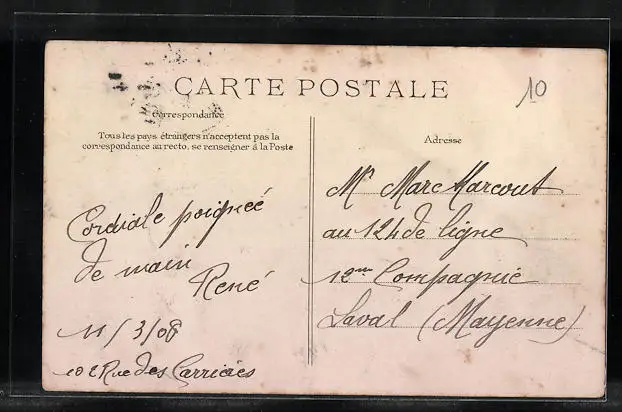 CARTE POSTALE
10
Correspondance
Tous les pays étrangers n'acceptent pas la
correspondance au recto, se renseigner à la Poste
Cordiale poignée
de main
René
11/3/08
102 Rue des Carrières
Adresse
Mr Marc Marcout
au 124 de ligne
12me Compagnie
Laval (Mayenne)